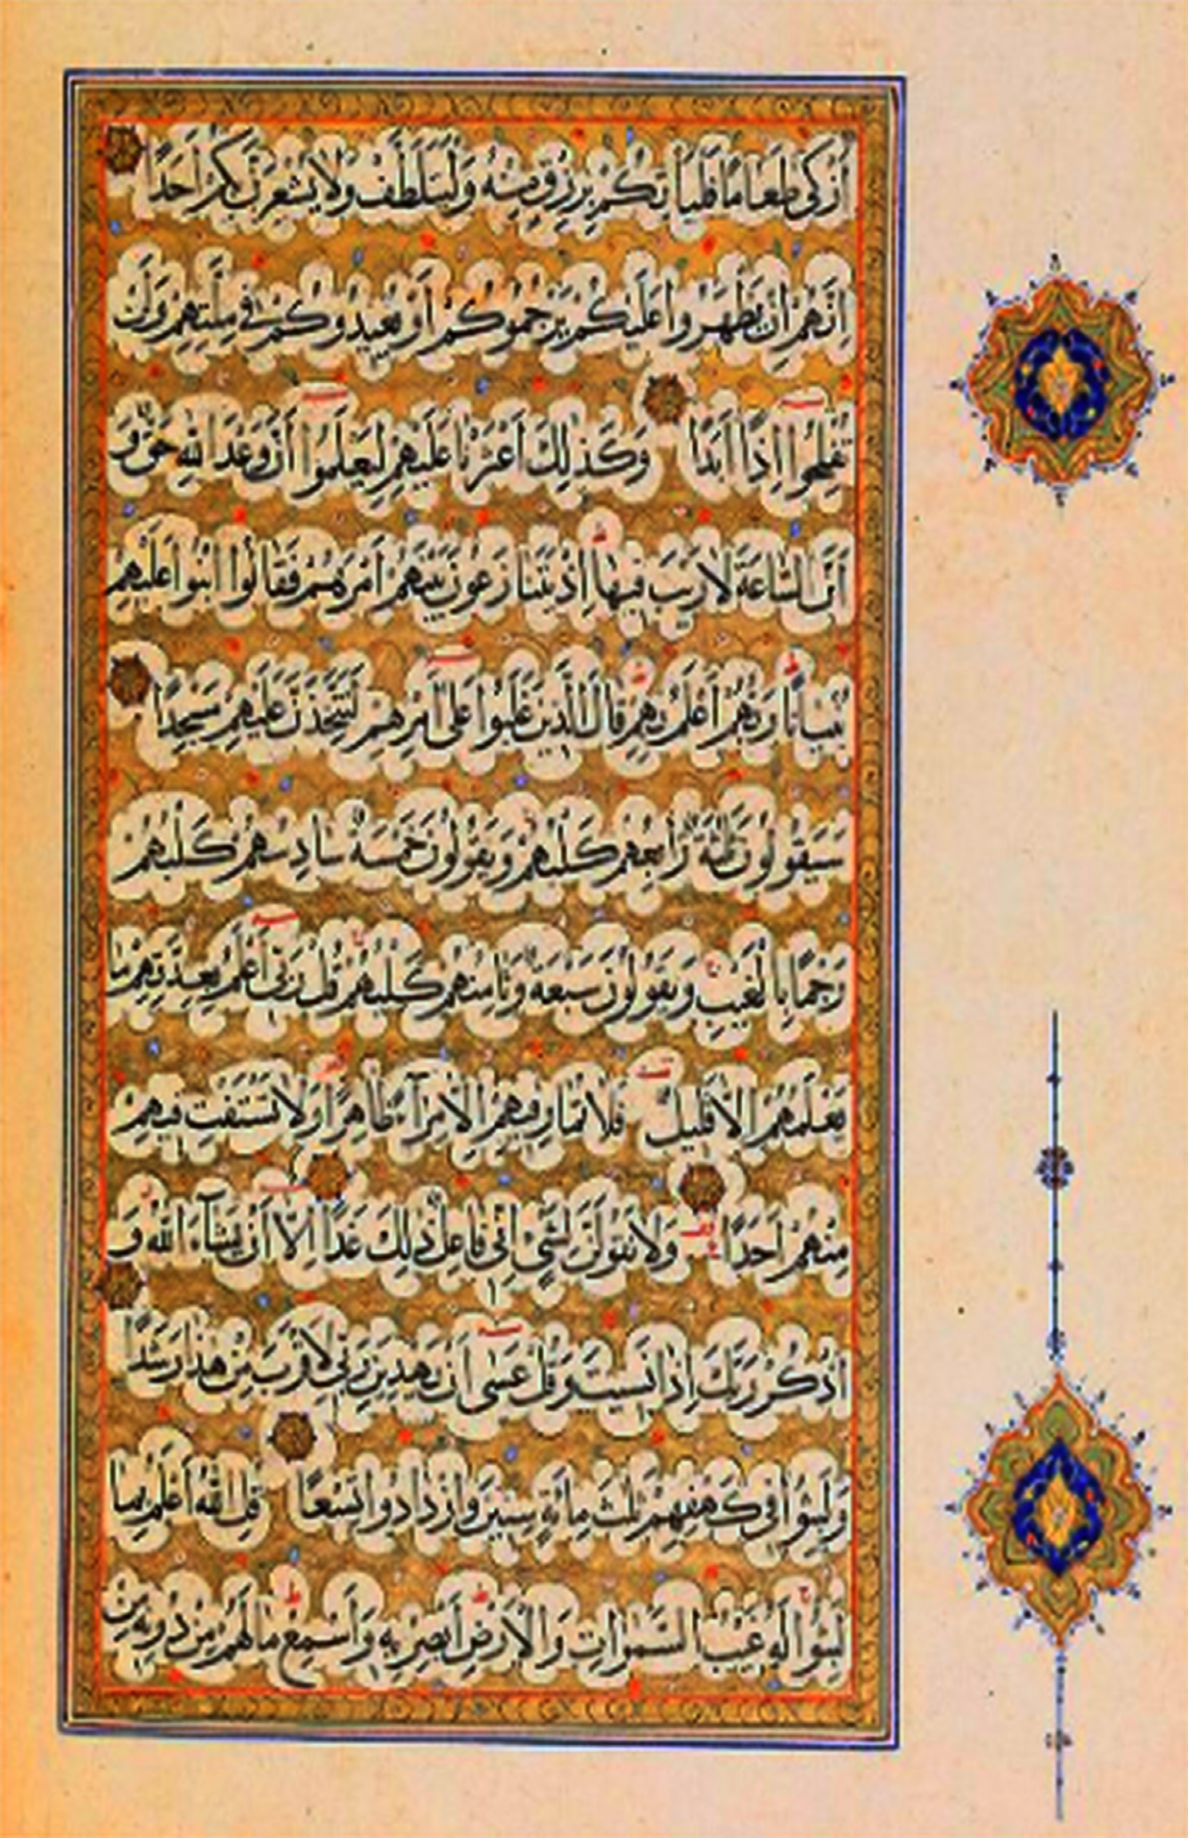 أَزْكَىٰ طَعَامًا فَلْيَأْتِكُمْ بِرِزْقٍ مِنْهُ وَلْيَتَلَطَّفْ وَلَا يُشْعِرَنَّ بِكُمْ أَحَدًا
إِنَّهُمْ إِنْ يَظْهَرُوا عَلَيْكُمْ يَرْجُمُوكُمْ أَوْ يُعِيدُوكُمْ فِي مِلَّتِهِمْ وَلَنْ
تُفْلِحُوا إِذًا أَبَدًا وَكَذَٰلِكَ أَعْثَرْنَا عَلَيْهِمْ لِيَعْلَمُوا أَنَّ وَعْدَ اللَّهِ حَقٌّ وَ
أَنَّ السَّاعَةَ لَا رَيْبَ فِيهَا إِذْ يَتَنَازَعُونَ بَيْنَهُمْ أَمْرَهُمْ فَقَالُوا ابْنُوا عَلَيْهِمْ
بُنْيَانًا رَبُّهُمْ أَعْلَمُ بِهِمْ قَالَ الَّذِينَ غَلَبُوا عَلَىٰ أَمْرِهِمْ لَنَتَّخِذَنَّ عَلَيْهِمْ مَسْجِدًا
سَيَقُولُونَ ثَلٰثَةٌ رَابِعُهُمْ كَلْبُهُمْ وَيَقُولُونَ خَمْسَةٌ سَادِسُهُمْ كَلْبُهُمْ
رَجْمًا بِالْغَيْبِ وَيَقُولُونَ سَبْعَةٌ وَثَامِنُهُمْ كَلْبُهُمْ قُلْ رَبِّي أَعْلَمُ بِعِدَّتِهِمْ مَا
يَعْلَمُهُمْ إِلَّا قَلِيلٌ فَلَا تُمَارِ فِيهِمْ إِلَّا مِرَآءً ظَاهِرًا وَلَا تَسْتَفْتِ فِيهِمْ
مِنْهُمْ أَحَدًا وَلَا تَقُولَنَّ لِشَيْءٍ إِنِّي فَاعِلٌ ذَٰلِكَ غَدًا إِلَّا أَنْ يَشَآءَ اللَّهُ وَ
اذْكُرْ رَبَّكَ إِذَا نَسِيتَ وَقُلْ عَسَىٰ أَنْ يَهْدِيَنِ رَبِّي لِأَقْرَبَ مِنْ هٰذَا رَشَدًا
وَلَبِثُوا فِي كَهْفِهِمْ ثَلٰثَ مِائَةٍ سِنِينَ وَازْدَادُوا تِسْعًا قُلِ اللَّهُ أَعْلَمُ بِمَا
لَبِثُوا لَهُ غَيْبُ السَّمٰوَاتِ وَالْأَرْضِ أَبْصِرْ بِهِ وَأَسْمِعْ مَا لَهُمْ مِنْ دُونِهِ مِنْ